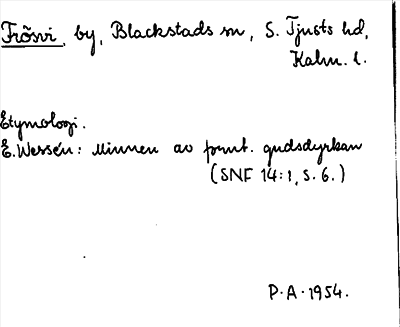 Frösvi, by, Blackstads sn, S. Tjusts hd,
Kalm. l.
Etymologi.
E. Wessén: Minnen av fornt. gudsdyrkan
(SNF 14:1, s. 6.)
P.A. 1954.